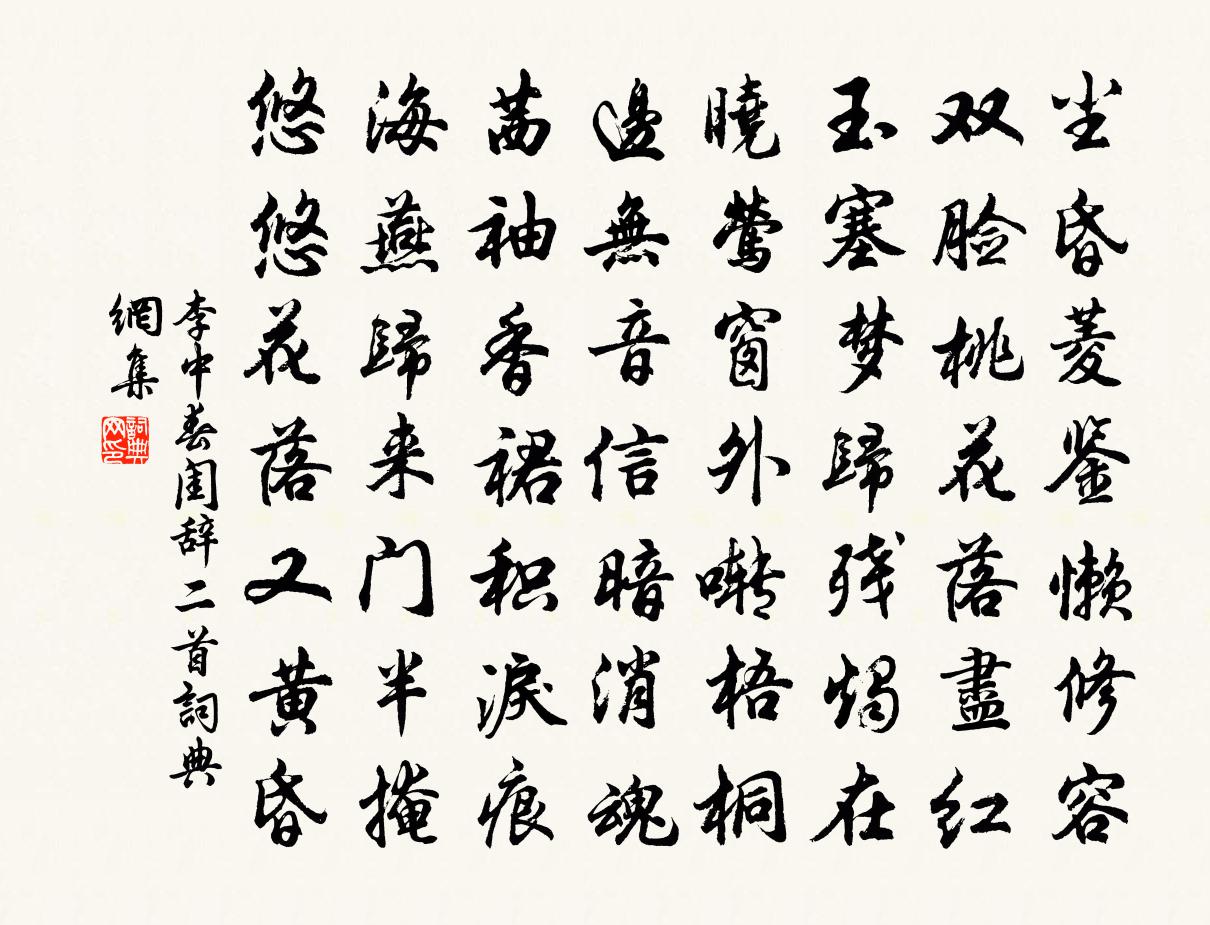 尘昏菱鉴懒修容
双脸桃花落盡红
玉塞梦歸残烛在
曉莺窗外啭梧桐
邊無音信暗消魂
茜袖香裙积淚痕
海燕歸来门半掩
悠悠花落又黄昏
李中春闺辞二首詞典
網集
詞典
网印